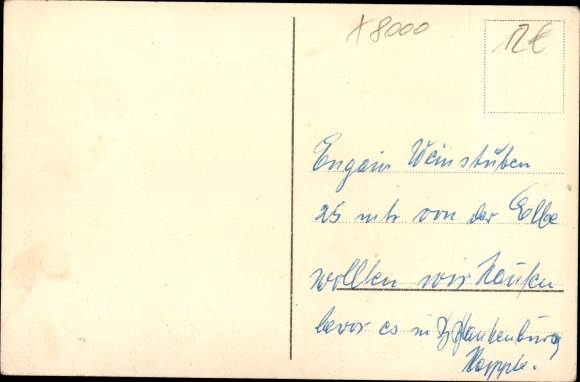 x 8000
12€
Engain Weinstuben
25 mtr von der Elbe
wollten wir Kaufen
bevor es in Blankenburg
klappte.